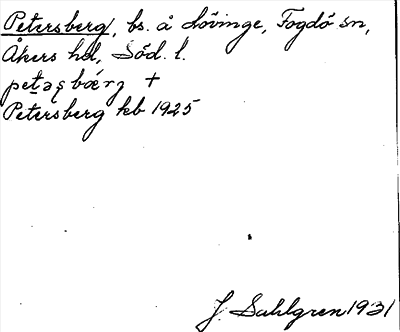 Petersberg, bs. å Lövinge, Fogdö sn,
Åkers hd, Söd. l.
+
Petersberg kb 1925
J. Sahlgren 1931